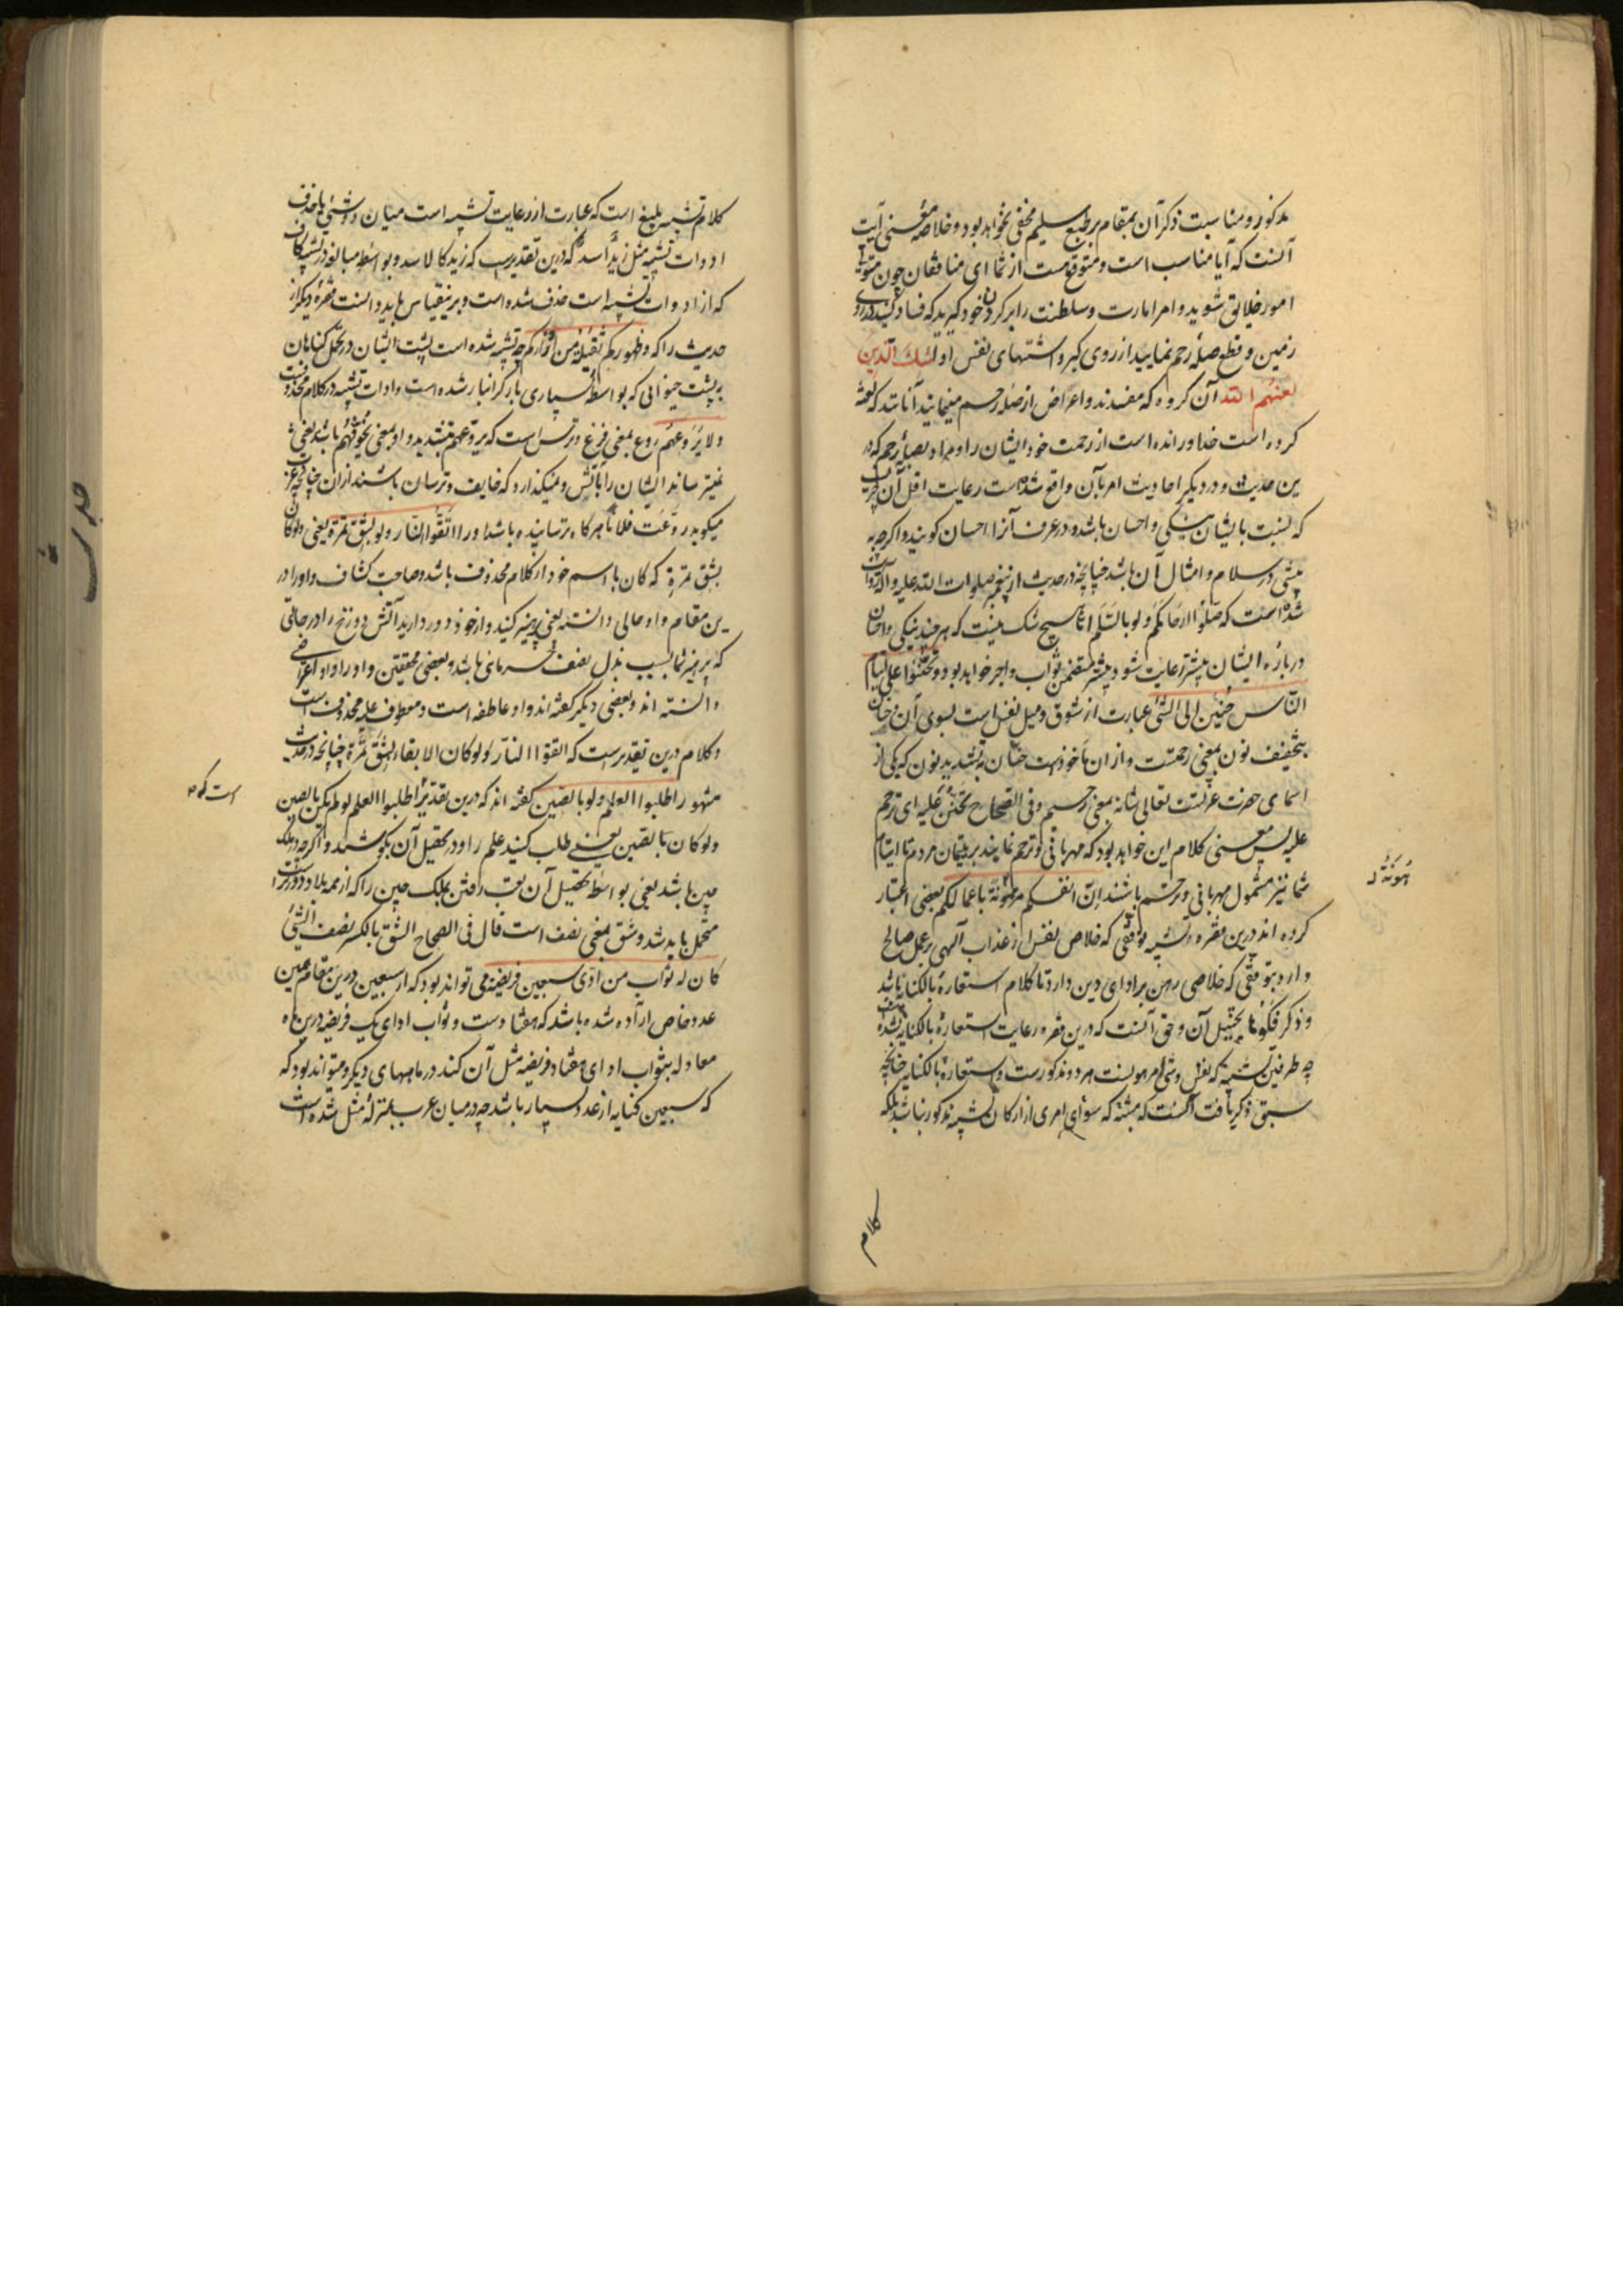 مذکور و مناسبت ذکر آن بمقام بر طبع سلیم مخفی نخواهد بود و خلاصه معنی آیت
آنست که آیا مناسب است و متوقع هست از شما ای منافقان چون متولی
امور خلایق شوید و امر امارت و سلطنت را بر کردن خود کیرید که فساد کنید در روی
زمین و قطع صلهٔ رحم نمایید از روی کبر و اشتهای نفس اولئك الذین
لعنهم الله آن کروه که مفسدند و اعراض از صلهٔ رحم مینمایند آنانند که لعنت
کرده است خدا و رانده است از رحمت خود ایشان را و مراد بصلهٔ رحم که در
ین حدیث و در دیکر احادیث امر بآن واقع شده است رعایت اقل آن چیزیست
که نسبت بایشان نیکی و احسان باشد و در عرف آنرا احسان کویند و اکرچه به
پیشی در سلام و امثال آن باشد چنانچه در حدیث از پیغمبر صلوات الله علیه و آله روایت
شده است که صلوا ارحامکم ولو بالسلم اما هیچ شک نیست که هر چند نیکی و احسان
دربارهٔ ایشان بیشتر رعایت شود بیشتر متضمن ثواب و اجر خواهد بود وتحننوا علی ایتام
الناس حنین الی الشئ عبارت از شوق و میل نفس است بسوی آن و حنان
بتخفیف نون بمعنی رحمتست و از ان ماخوذست حنان به تشدید نون که یکی از
اسمای حضرت عزتست تعالی شانه بمعنی رحیم وفی الصحاح تحنن علیه ای ترحم
علیه پس معنی کلام این خواهد بود که مهربانی و ترحم نمایند بر یتیمان مردم تا ایتام
شما نیز مشمول مهربانی و ترحم باشند ان انفسکم مرهونة باعمالکم بعضی اعتبار
کرده اند درین فقره تشبیه توقفی که خلاص نفس از عذاب الهی بر عمل صالح
دارد بتوقفی که خلاصی رهن بر ادای دین دارد تا کلام استعارهٔ بالکنایه باشد
و ذکر فکوها تخییل آن و حق آنست که درین فقره رعایت استعارهٔ بالکنایه نشده
چه طرفین تشبیه که نفس و شئ مرهونست هر دو مذکورست و استعارهٔ بالکنایه چنانچه
سبق ذکر یافت آنست که مشبه که سوای امری از ارکان تشبیه مذکور نباشد بلکه
هونة
کلام
کلام تشبیه بلیغ است که عبارت از رعایت تشبیه است میان دو شئ با حذف
ادوات تشبیه مثل زید اسد که درین تقدیرست که زید کالاسد و بواسطهٔ مبالغه در تشبیه کاف
که از ادوات تشبیه است حذف شده است و برین قیاس باید دانست فقرهٔ دیکر از
حدیث را که وظهورکم ثقیلة من اوزارکم چه تشبیه شده است پشت ایشان در تحمل کناهان
به پشت حیوانی که بواسطهٔ بسیاری بار کرانبار شده است و ادات تشبیه در کلام محذوفست
ولا یروعهم روع بمعنی فزع و ترس است که یروعهم بتشدید واو بمعنی یخوفهم باشد یعنی
نمیترساند ایشان را بآتش و نمیکذارد که خایف و ترسان باشند از ان چنانچه عرب
میکوید روعت فلانا هرکاه ترسانیده باشد او را اتقوا النار ولو بشق تمرة یعنی ولو کان
بشق تمرة که کان با اسم خود از کلام محذوف باشد و صاحب کشاف واو را در
ین مقام واو حالی دانسته یعنی پرهیز کنید و از خود دور دارید آتش دوزخ را در حالتی
که پرهیز شما بسبب بذل نصف خرمای باشد و بعضی محققین واو را واو اعتراضی
دانسته اند و بعضی دیکر کفته اند واو عاطفه است و معطوف علیه محذوفست
و کلام درین تقدیرست که اتقوا النار ولو کان الاتقاء بشق تمرة چنانچه در حدیث
مشهور اطلبوا العلم ولو بالصین کفته اند که درین تقدیر اطلبوا العلم لو لم یکن بالصین
ولو کان بالصین یعنی طلب کنید علم را و در تحصیل آن بکوشید و اکرچه در ملک
چین باشد یعنی بواسطهٔ تحصیل آن تعب رفتن بملک چین را که از همه بلاد دورترست
متحمل باید شد و شق بمعنی نصف است قال فی الصحاح الشق بالکسر نصف الشئ
کان له ثواب من ادی سبعین فریضة می تواند بود که از سبعین درین مقام همین
عدد خاص اراده شده باشد که هفتادست و ثواب ادای یک فریضه درین ماه
معادله بثواب ادای هفتاد فریضه مثل آن کند در ماههای دیکر و میتواند بود که
که سبعین کنایه از عدد بسیار باشد چه در میان عرب بمنزلهٔ مثل شده است
است که
حدیث